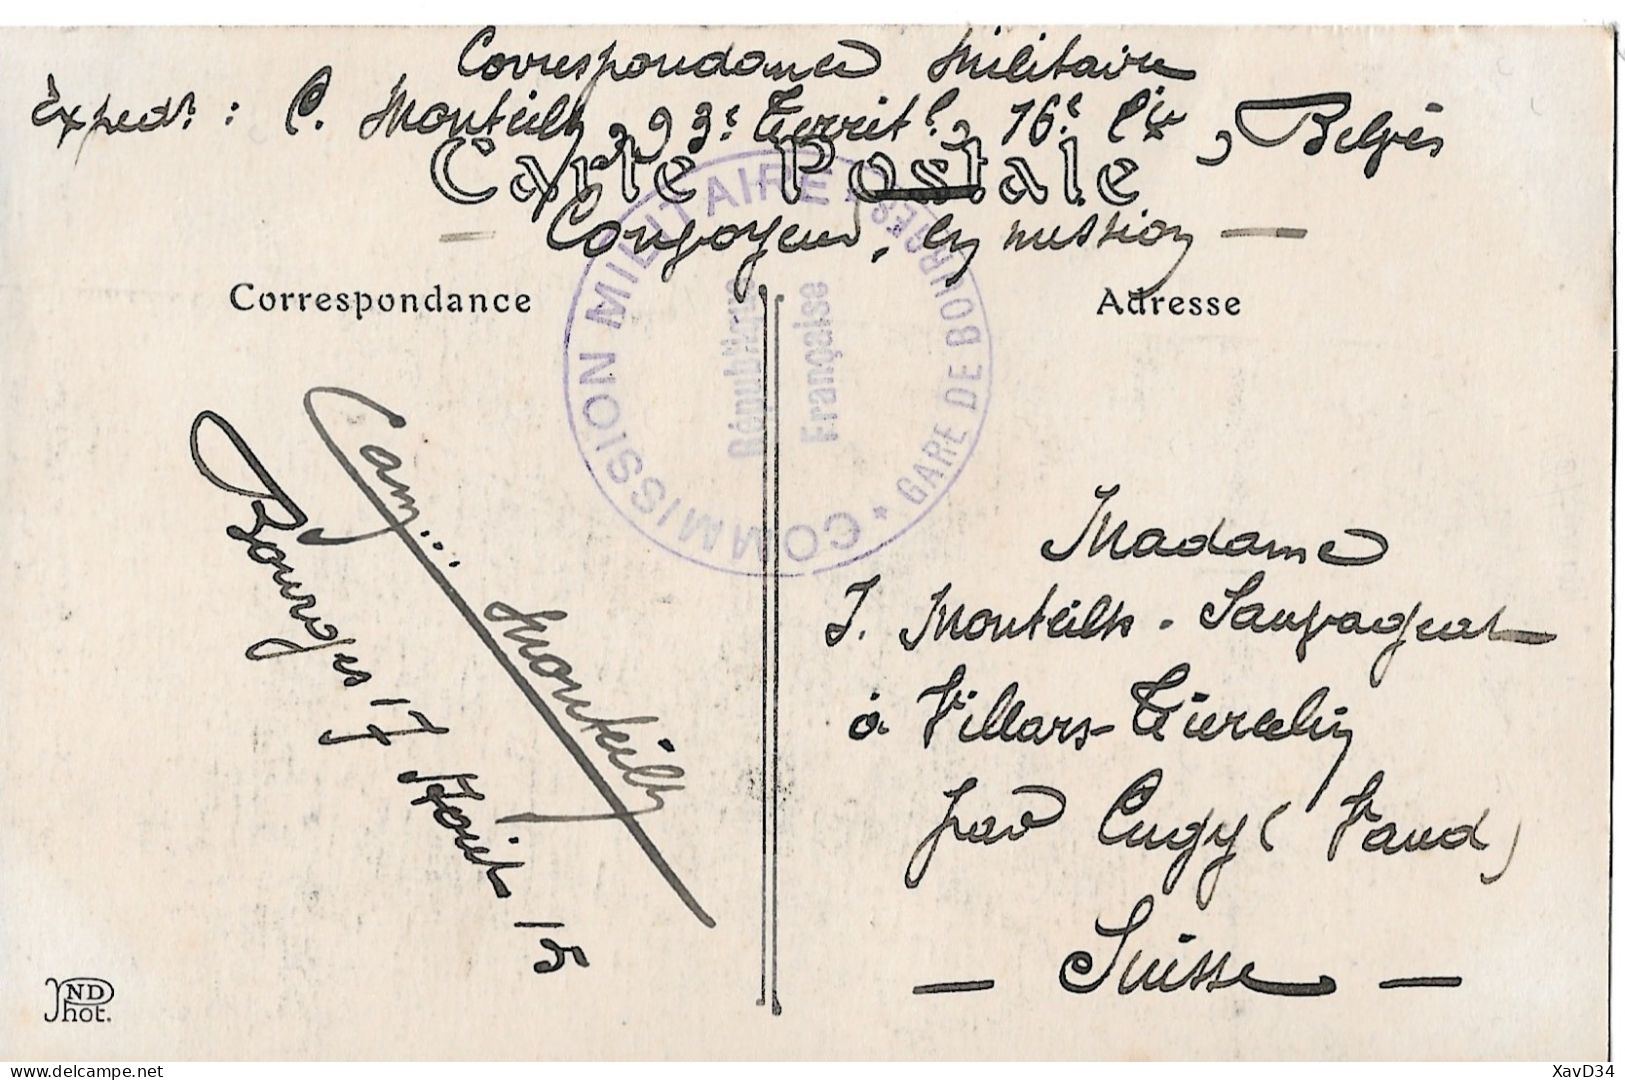 Correspondance Militaire
Expedr. : C. Monteilh, 93e Territl., 16e Cie, Belvès
Carte Postale
— Convoyeur, en mission —
Correspondance
Adresse
COMMISSION MILITAIRE
* GARE DE BOURGES *
République
Française
Cam... Monteilh
Bourges 17 Août 15
Madame
J. Monteilh - Sauvageat
à Villars-Tiercelin
par Cugy (Vaud)
— Suisse —
ND
Phot.
https://www.delcampe.net
XavD34